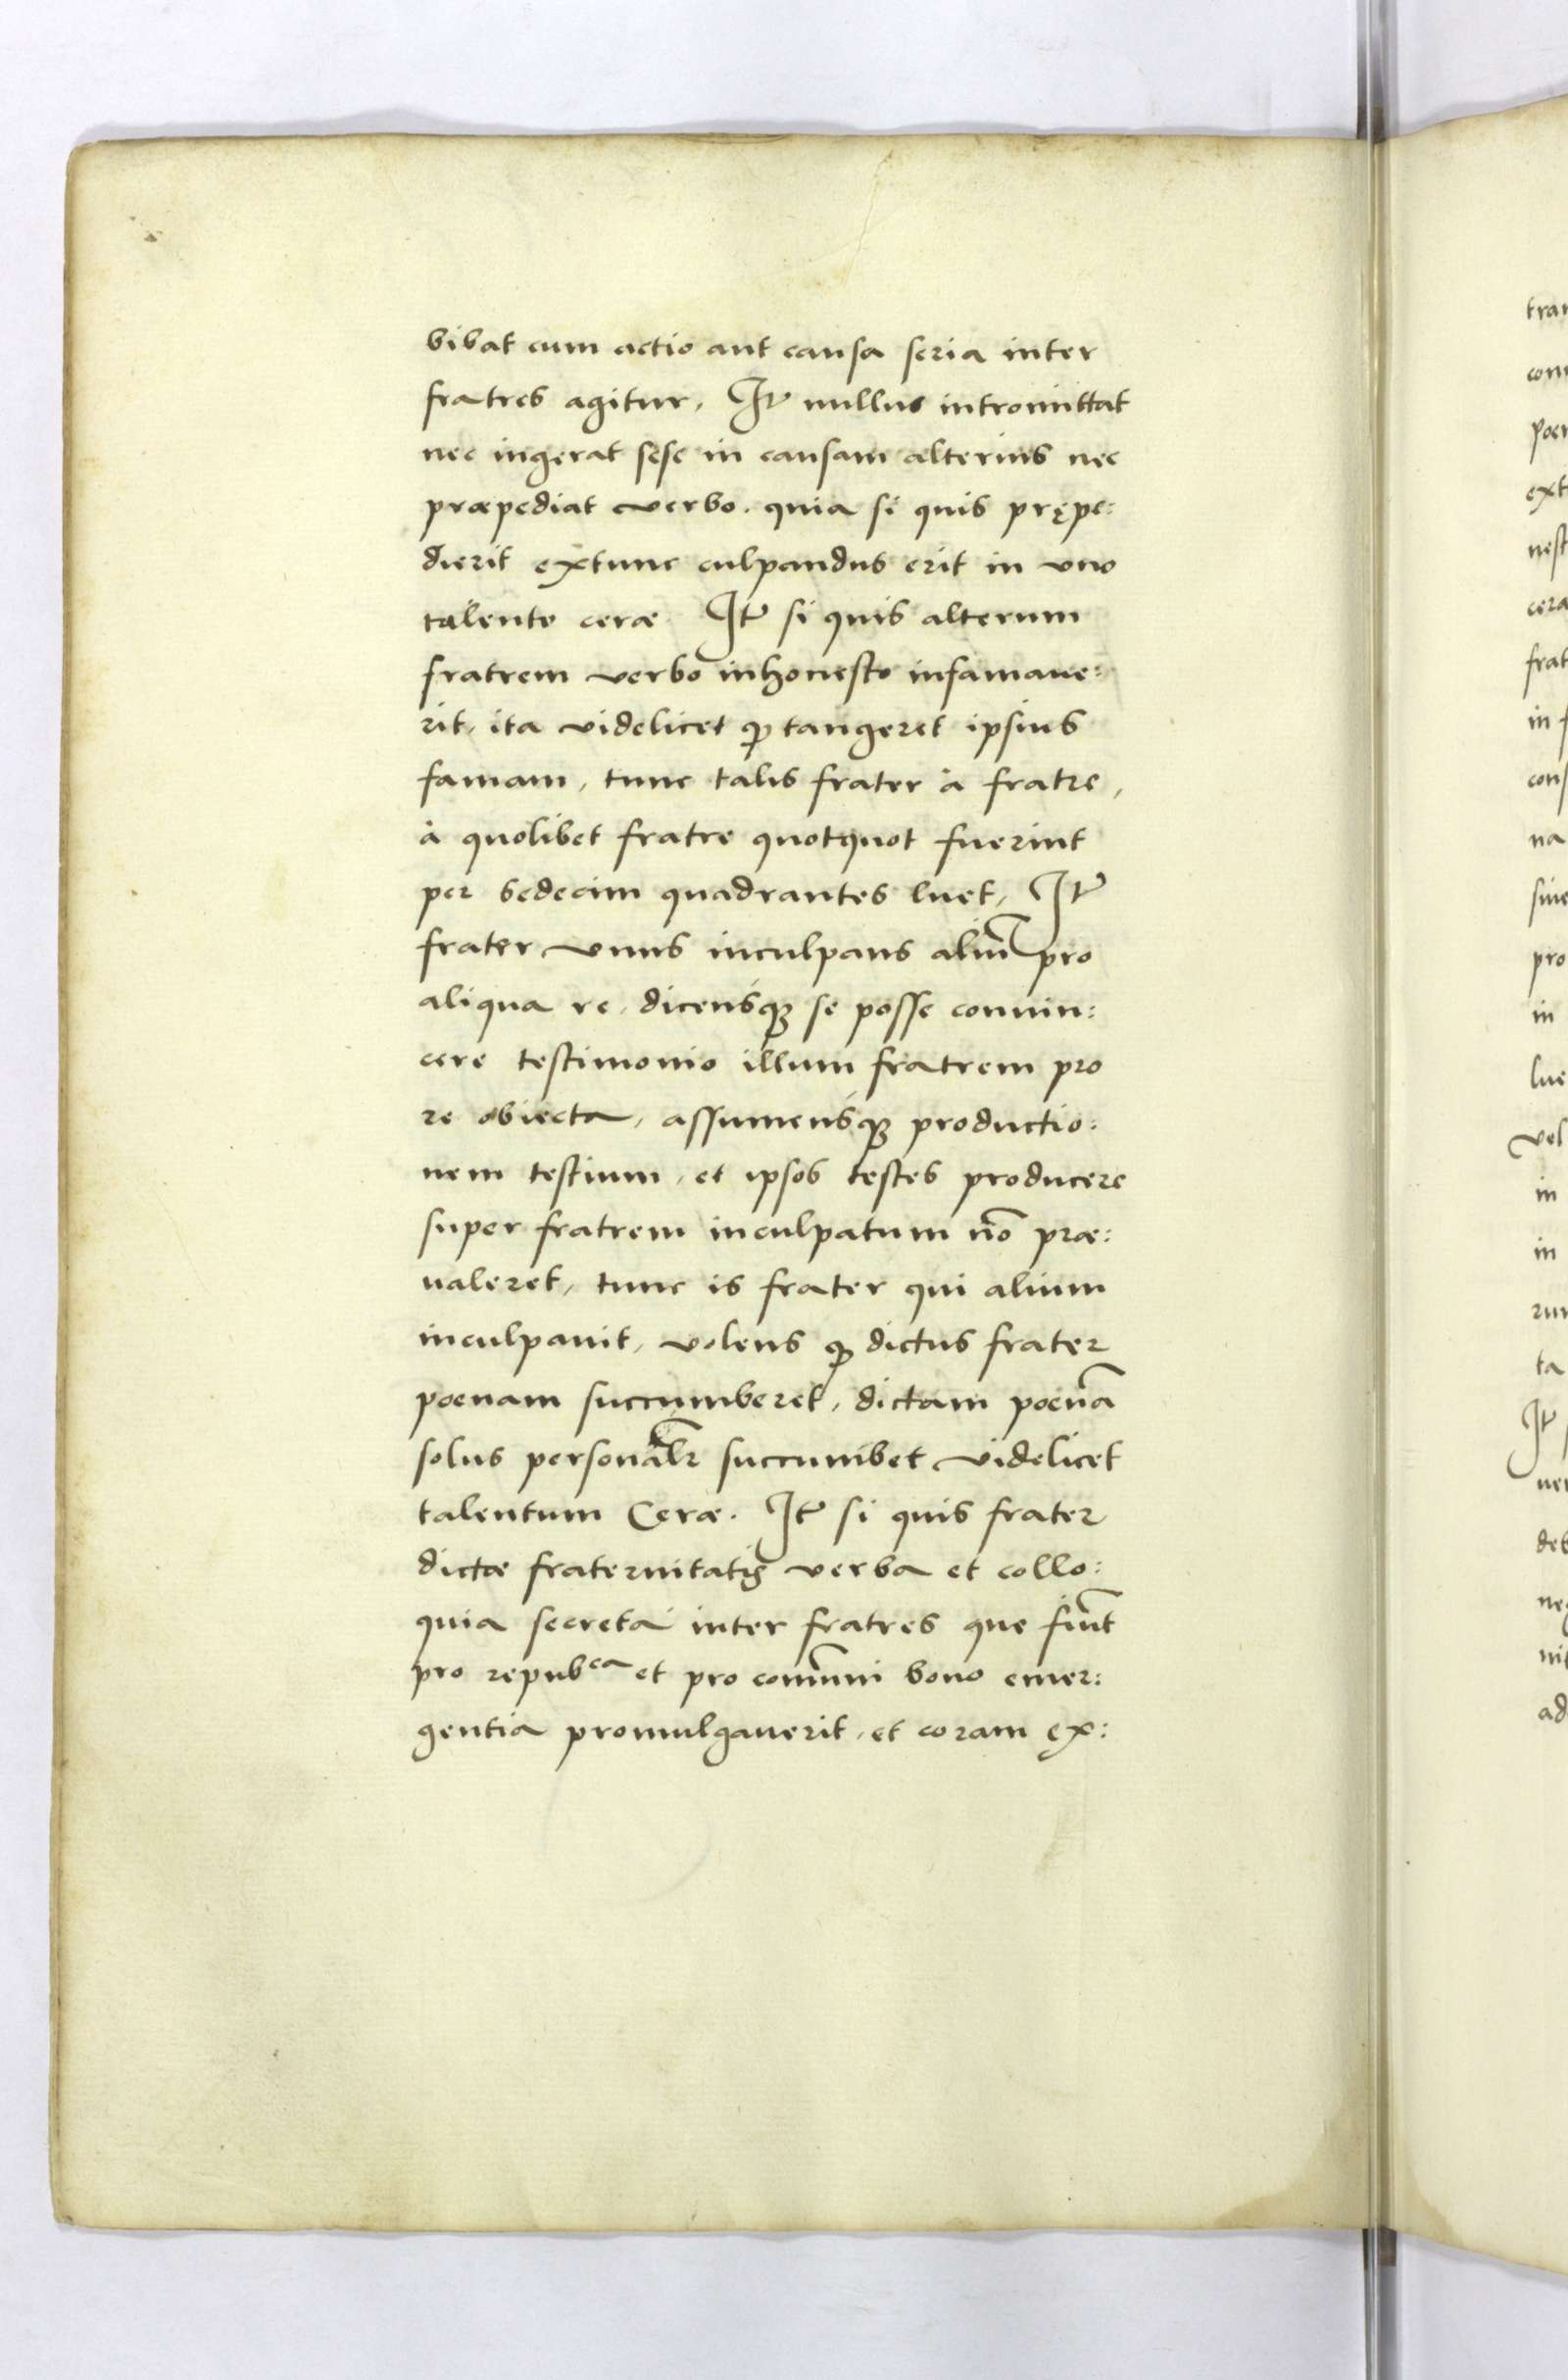 bibat cum actio aut causa seria inter
fratres agitur, Itē nullus intromittat
nec ingerat sese in causam alterius nec
præpediat verbo. quia si quis prępe:
dierit extunc culpandus erit in vno
talento ceræ. Itē si quis alterum
fratrem verbo inhonesto infamaue:
rit, ita videlicet ꝙ tangeret ipsius
famam, tunc talis frater à fratre,
à quolibet fratre quotquot fuerint
per sedecim quadrantes luet, Itē
frater vnus inculpans aliū pro
aliqua re, dicensqꝫ se posse conuin:
cere testimonio illum fratrem pro
re obiecta, assumensqꝫ productio:
nem testium, et ipsos testes producere
super fratrem inculpatum nō præ:
ualeret, tunc is frater qui alium
inculpauit, volens ꝙ dictus frater
poenam succumberet, dictam poenā
solus personalr̄ succumbet videlicet
talentum Ceræ. Itē si quis frater
dictæ fraternitatis verba et collo:
quia secreta inter fratres que fiūt
pro repubᶜᵃ et pro comūni bono emer:
gentia promulgauerit, et coram ex:
tran
com
poen
ext
nest
cera
frat
in f
cons
na
siue
pro
in
lue
vel
in
in
rum
ta
Itē
uer
deb
neg
nit
ad